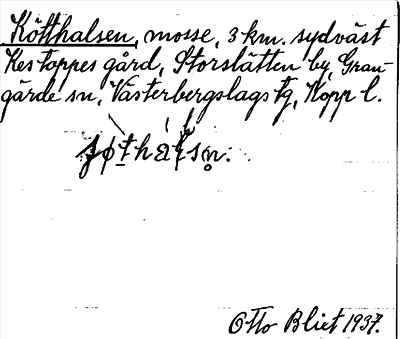 Kötthalsen, mosse, 3 km. sydväst
Kestoppes gård, Storslätten by, Gran-
gärde sn, Västerbergslags tg, Kopp l.
Otto Blixt 1937.